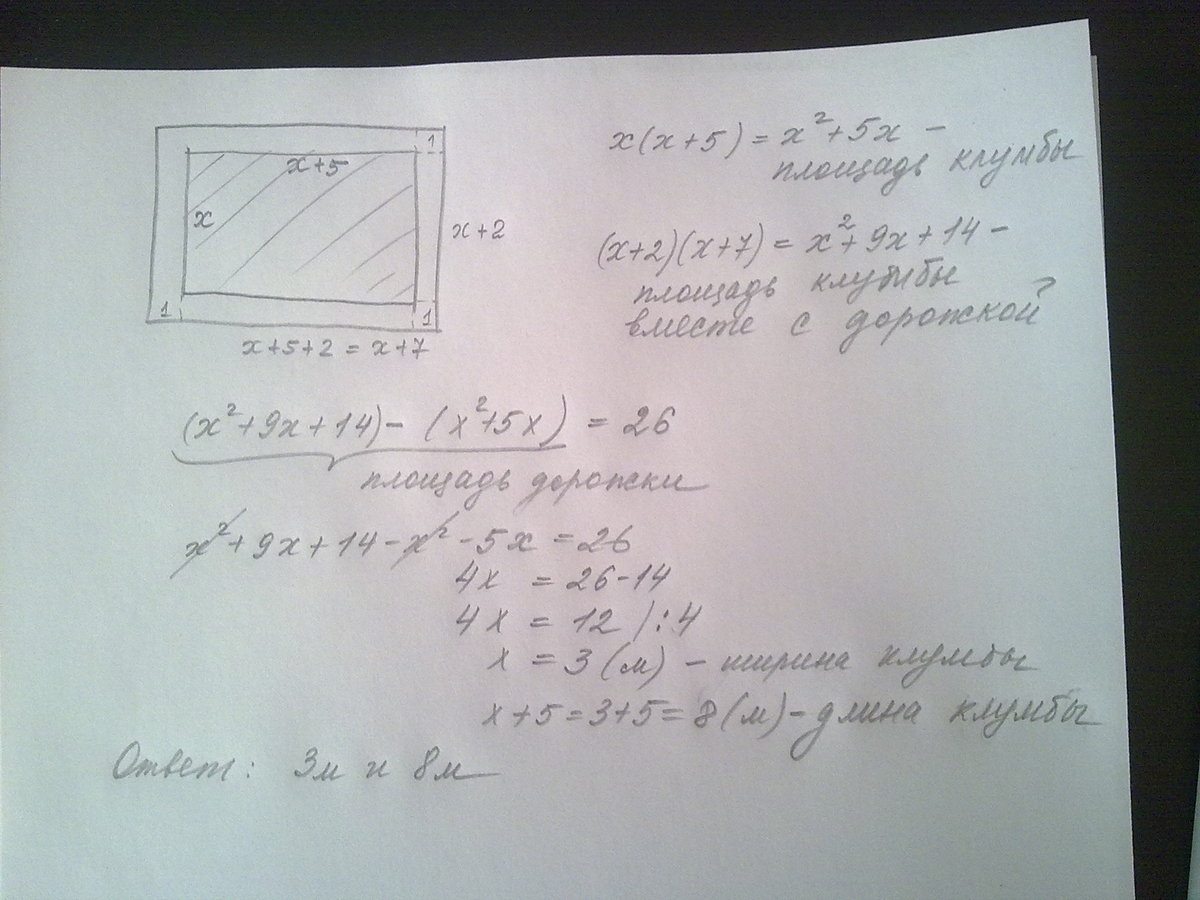 1
x+5
x
x+2
1
1
x+5+2 = x+7
x(x+5) = x²+5x –
площадь клумбы
(x+2)(x+7) = x²+9x+14 –
площадь клумбы
вместе с дорожкой
(x²+9x+14) – (x²+5x) = 26
площадь дорожки
x²+9x+14–x²–5x = 26
4x = 26-14
4x = 12 ∕:4
x = 3 (м) – ширина клумбы
x+5=3+5=8(м)–длина клумбы
Ответ: 3м и 8м